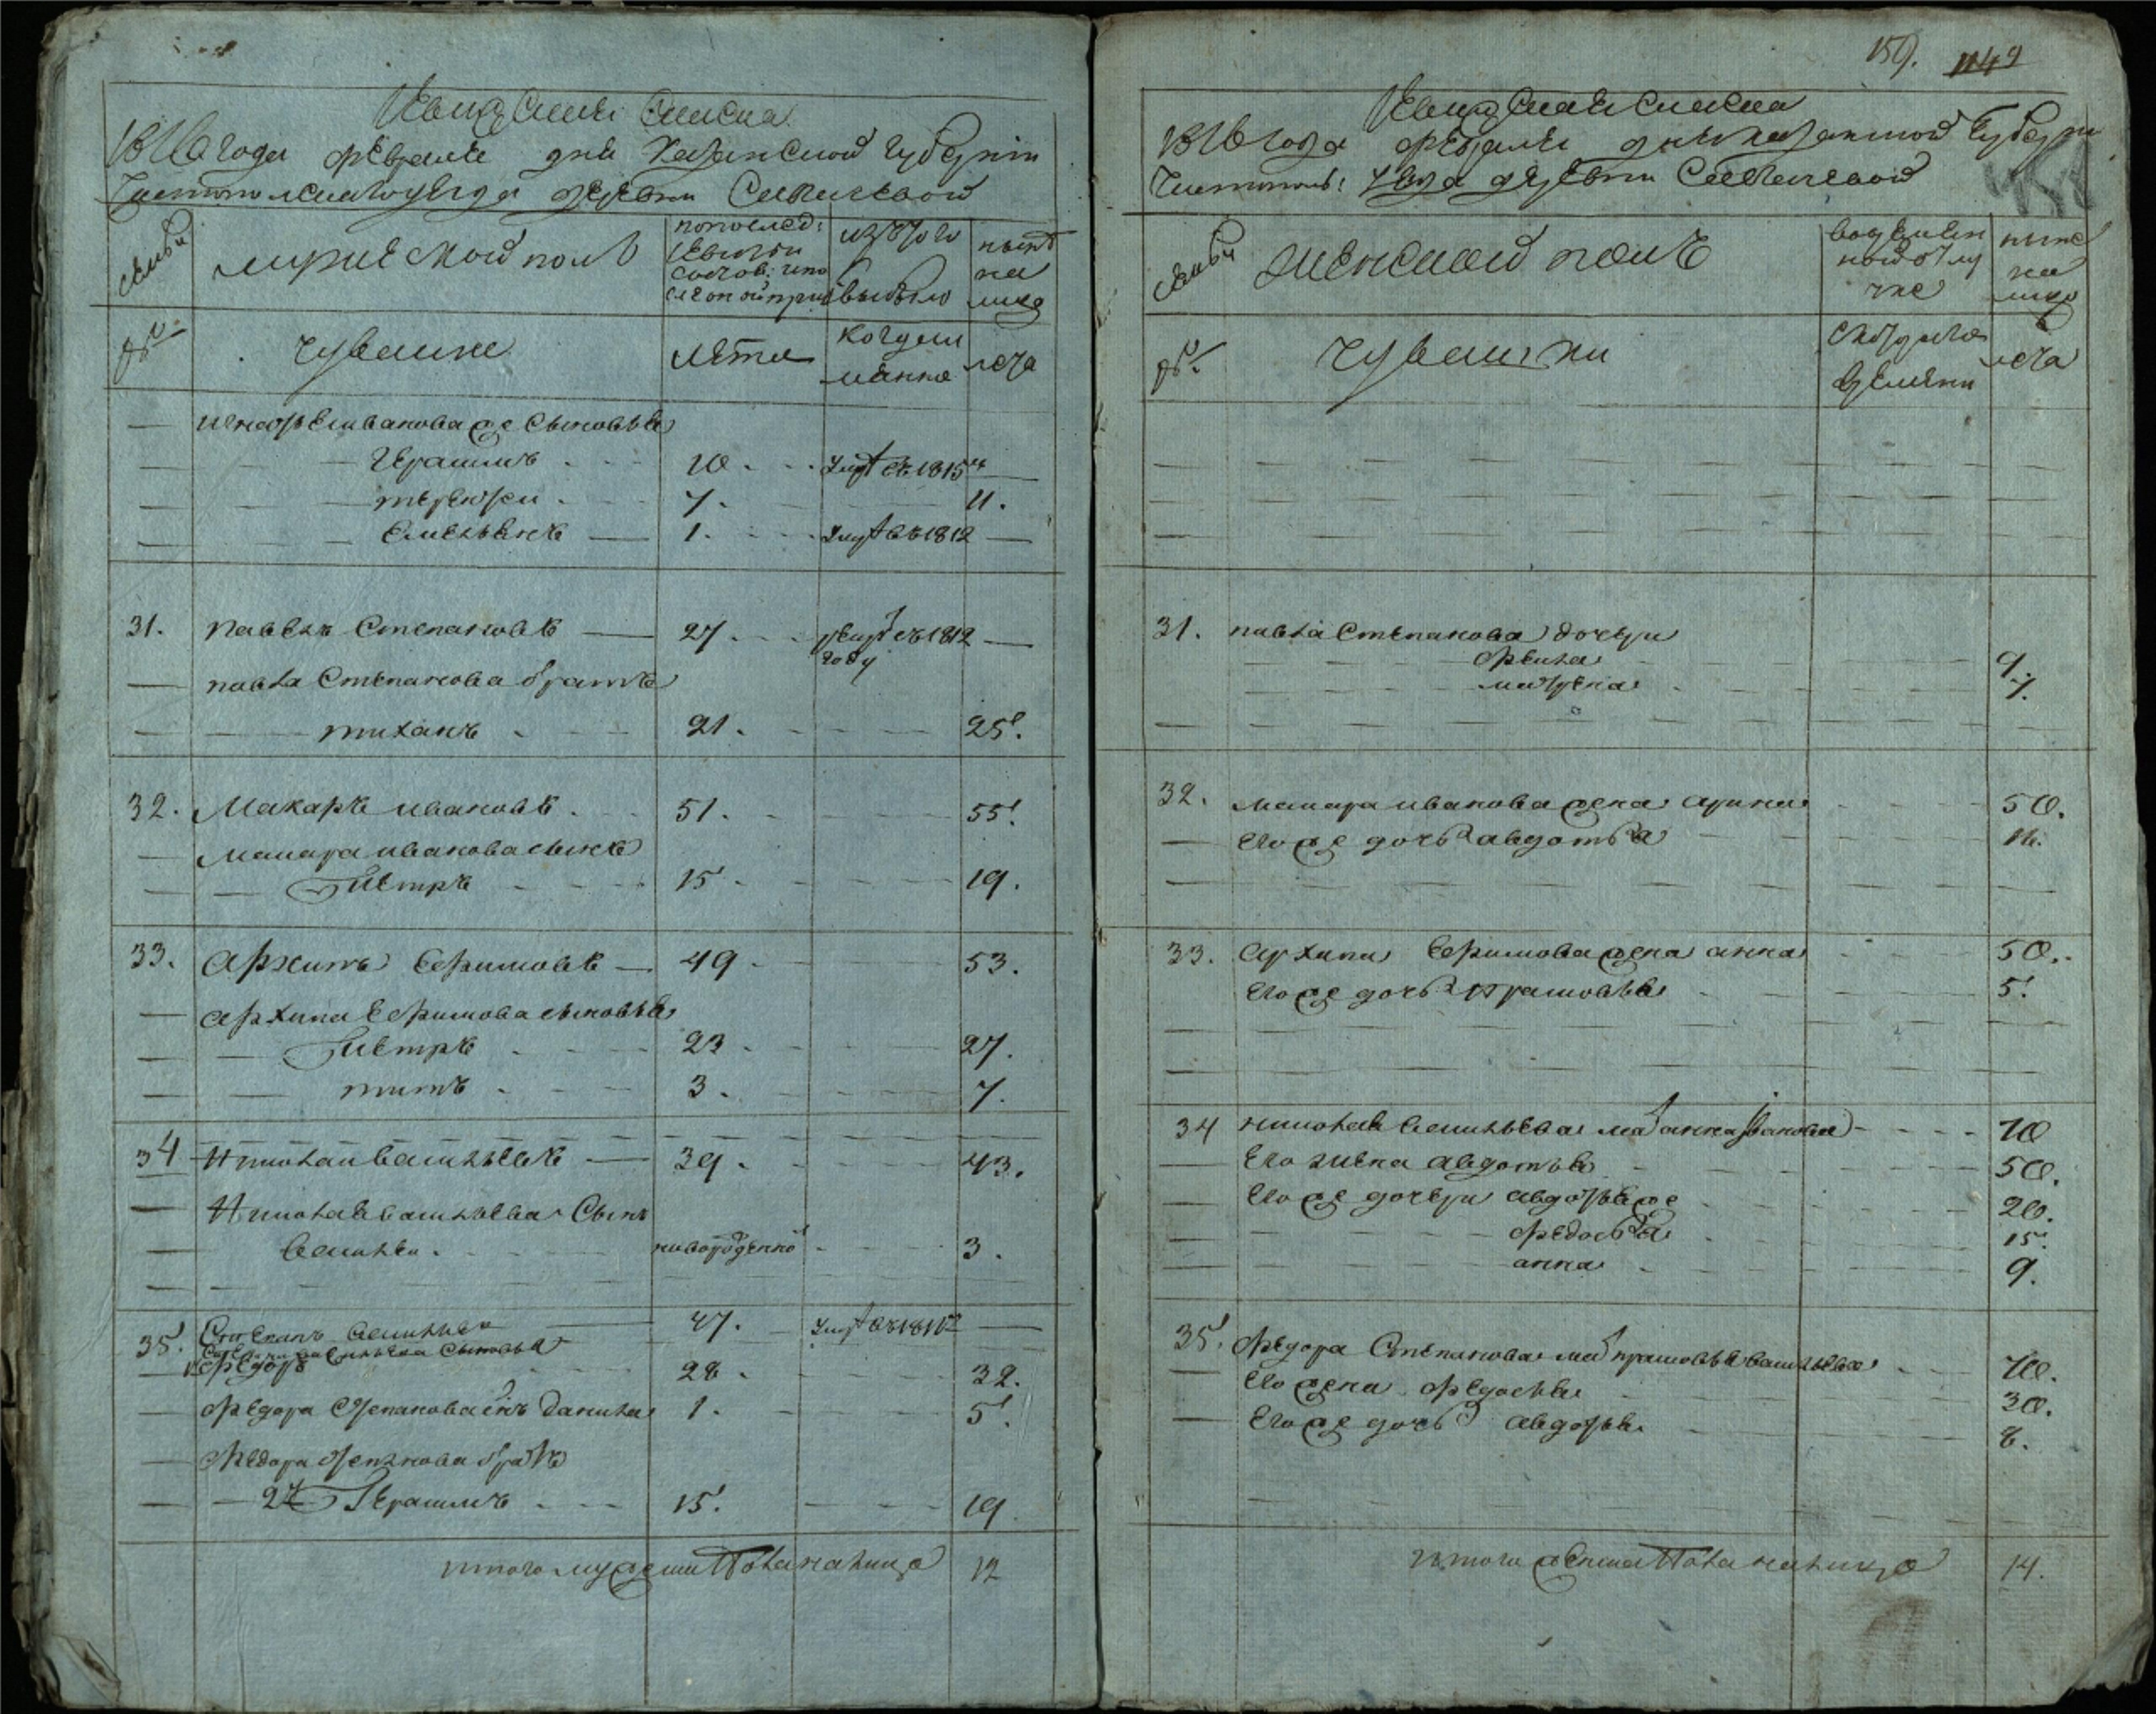 Ревизская Сказка
1816 года февраля дня Казанской губернии
Чистопольскаго уезда деревни
семьи
мужеской полъ
по послед:
ревизии
состояло и по
сле оной прибыло
изъ того
выбыло
ныне
на
лицо
№
чуваше
лета
когда и
менно
лета
Ивановажъ сыновья
Герасимъ 10. умре въ 1815м
7. 11.
Емельянъ 1. умре въ 1812
31. Павелъ Степановъ 27. въ 1812
году
Павла Степанова братъ
тиханъ 21. 25.
32. Макаръ Ивановъ 51. 55.
Макара Иванова сынъ
Петръ 15. 19.
33. Архипъ Ефимовъ 49 53.
Архипа Ефимова сыновья
Петръ 23. 27.
титъ 3. 7.
34 Николай Васильевъ 39. 43.
Николая Васильева Сынъ
Василей новорожденной 3.
35. Степанъ Васильевъ 47. умре въ 181
Степана Васильева Сыновья
1й Федоръ 28. 32.
Федора Степанова сынъ Данила 1. 5.
Федора Степанова братъ
2й Герасимъ 15. 19.
итого мужеска пола на лицо 12
159. 1149
Ревизская Сказка
1816 года февраля дня казанской губерни
Чистополь: уезда деревни
семьи
женской полъ
во времен
ной отлу
чке
ныне
на
лицо
№
чувашки
съ котораго
времяни
лета
31. павла Степанова дочери
Фекла 9.
матрена 7.
32. макара иванова жена арина 50.
Его же дочь авдотья 16.
33. Архипа Ефимова жена анна 50.
Его же дочь прасковья 5.
34 николая Васильева мать анна Иванова 70
Его жена авдотья 50.
Его же дочери авдотья же 20.
федосья 15.
анна 9.
35. Федора Степанова мать прасковья васильева 70.
Его жена федосья 30.
Его же дочь авдотья 8.
итого женска пола на лицо 14.